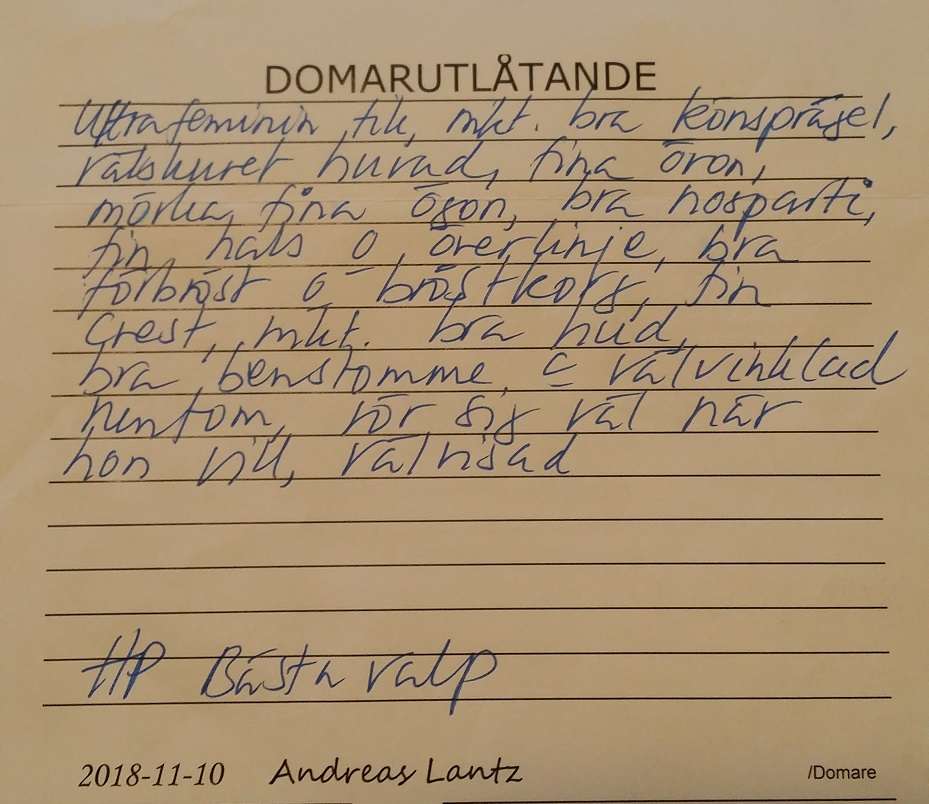 DOMARUTLÅTANDE
Ultrafeminin tik, mkt. bra könsprägel,
välskuret huvud, fina öron,
mörka, fina ögon, bra nosparti,
fin hals o överlinje, bra
förbröst o bröstkorg, fin
crest, mkt. bra hud,
bra benstomme, o välvinklad
runtom, rör sig väl när
hon vill, välvisad
HP Bästa valp
2018-11-10 Andreas Lantz /Domare